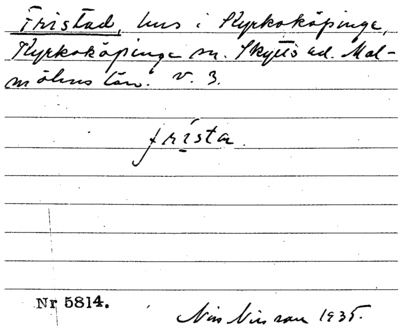 Fristad, hus i Kyrkoköpinge,
Kyrkoköpinge sn. Skytts hd. Mal-
möhus län. V. 3.
frista.
Nr 5814.
Nils Nilsson 1935.